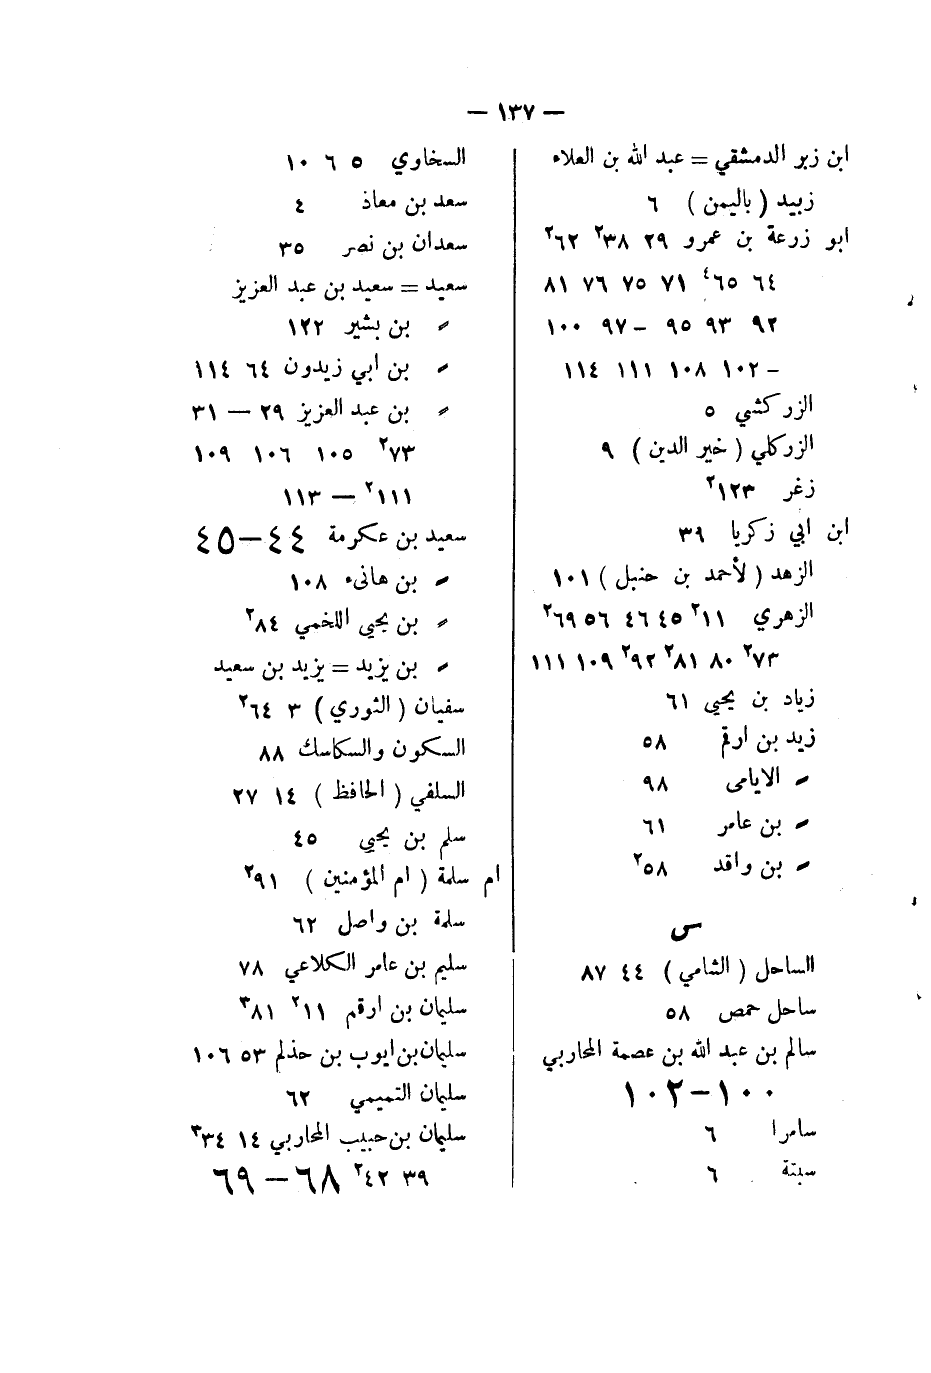 — ١٣٧ —
ابن زبر الدمشقي = عبد الله بن العلاء
زبيد ( باليمن ) ٦
ابو زرعة بن عمرو ٢٩ ٣٨² ٦٢²
٦٤ ٦٥⁴ ٧١ ٧٥ ٧٦ ٨١
٩٢ ٩٣ ٩٥ – ٩٧ ١٠٠
– ١٠٢ ١٠٨ ١١١ ١١٤
الزركشي ٥
الزركلي ( خير الدين ) ٩
زغر ١٢٣²
ابن ابي زكريا ٣٩
الزهد ( لأحمد بن حنبل ) ١٠١
الزهري ١١² ٤٥ ٤٦ ٥٦ ٦٩²
٧٣² ٨٠ ٨١² ٩٢² ١٠٩ ١١١
زياد بن يحيى ٦١
زيد بن ارقم ٥٨
〃 الايامى ٩٨
〃 بن عامر ٦١
〃 بن واقد ٥٨²
س
الساحل ( الشامي ) ٤٤ ٨٧
ساحل حمص ٥٨
سالم بن عبد الله بن عصمة المحاربي
١٠٠–١٠٢
سامرا ٦
سبتة ٦
السخاوي ٥ ٦ ١٠
سعد بن معاذ ٤
سعدان بن نصر ٣٥
سعيد = سعيد بن عبد العزيز
〃 بن بشير ١٢٢
〃 بن ابي زيدون ٦٤ ١١٤
〃 بن عبد العزيز ٢٩ — ٣١
٧٣² ١٠٥ ١٠٦ ١٠٩
١١١² — ١١٣
سعيد بن عكرمة ٤٤–٤٥
〃 بن هانىء ١٠٨
〃 بن يحيى اللخمي ٨٤²
〃 بن يزيد = يزيد بن سعيد
سفيان ( الثوري ) ٣ ٦٤²
السكون والسكاسك ٨٨
السلفي ( الحافظ ) ١٤ ٢٧
سلم بن يحيى ٤٥
ام سلمة ( ام المؤمنين ) ٩١²
سلمة بن واصل ٦٢
سليم بن عامر الكلاعي ٧٨
سليمان بن ارقم ١١² ٨١³
سليمان بن ايوب بن حذلم ٥٣ ١٠٦
سليمان التميمي ٦٢
سليمان بن حبيب المحاربي ١٤ ٣٤³
٣٩ ٤٢² ٦٨–٦٩